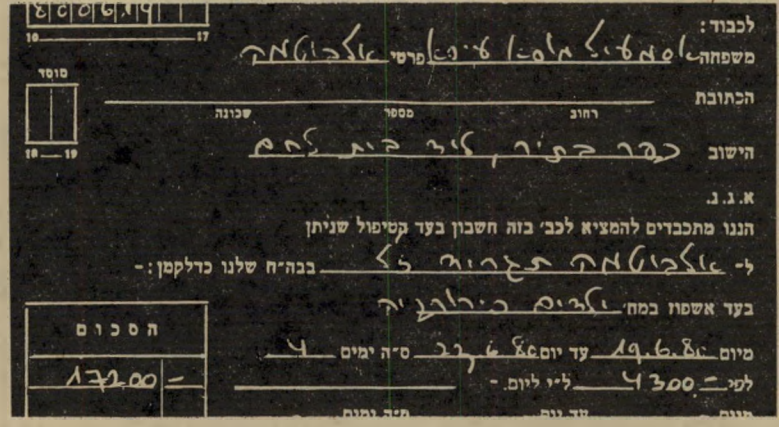 לכבוד:
משפחה אסמעיל מוסא עיסא פרטי אלבוטמה
הכתובת
רחוב מספר שכונה
הישוב כפר בתיר, ליד בית לחם
א.ג.נ.
הננו מתכבדים להמציא לכב' בזה חשבון בעד הטיפול שניתן
ל- אלבוטמה תגריד ז"ל בבה"ח שלנו כדלקמן:-
בעד אשפוז במח' ילדים כירורגיה
מיום 19.6.80 עד יום 22.6.80 ס"ה ימים 4
לפי 4300.- ל"י ליום.-
מיום עד יום ס"ה ימים
10 17
מוסד
18—19
הסכום
17200 -